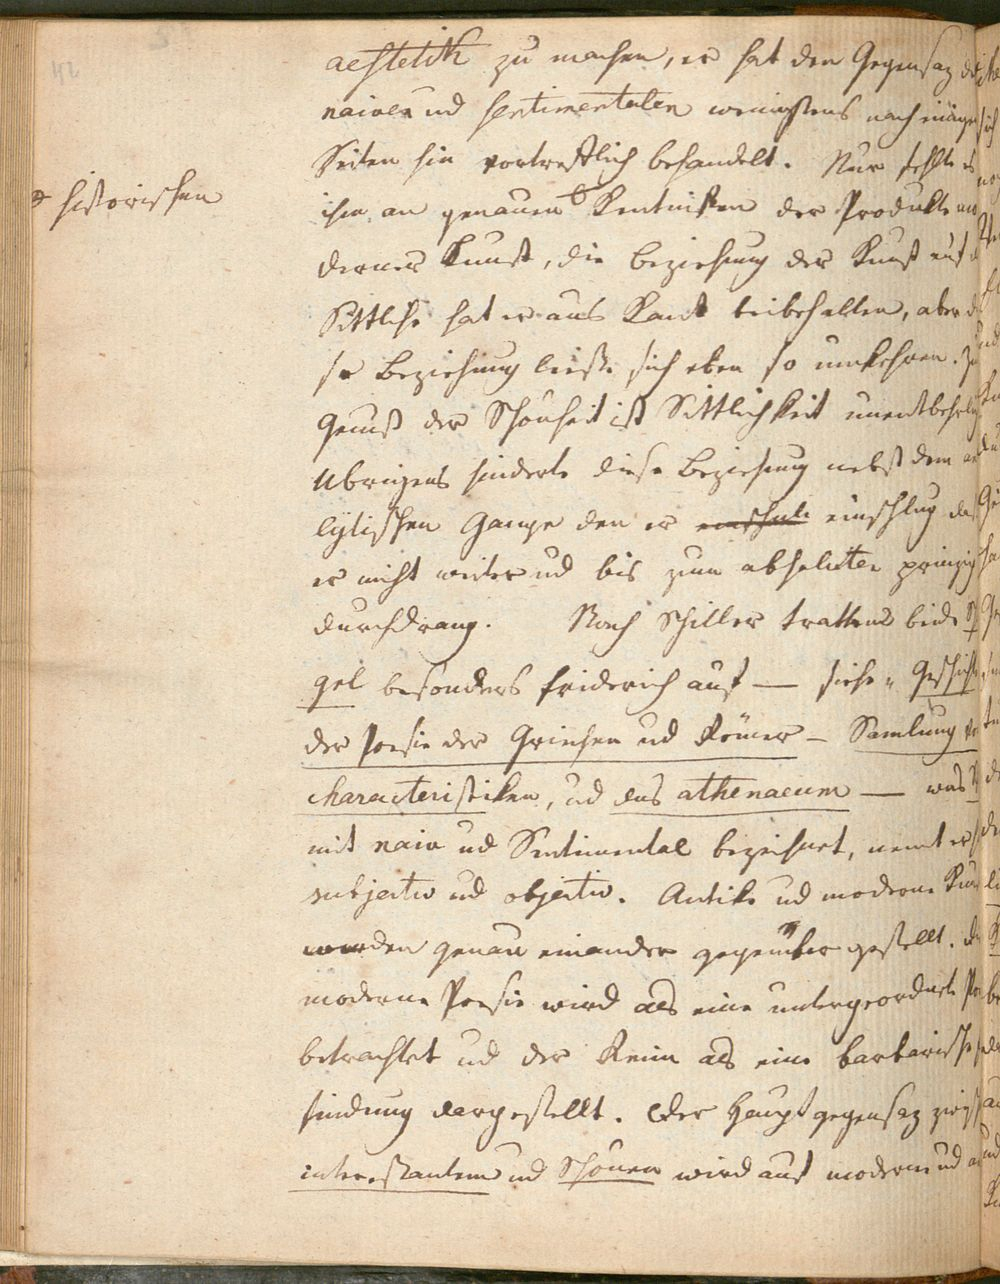 42
aesthetik zu machen, er hat den Gegensaz des
naiven und sentimentalen wenigstens nach einigen
Seiten hin vortrefflich behandelt. Nur fehlte es
historischen
ihm an genauen Kentnißen der Produkte mo
derner Kunst, die Beziehung der Kunst auf
Sittliche hat er aus Kant beibehalten, aber
se Beziehung ließe sich eben so umkehren. Zum
Genuß der Schönheit ist Sittlichkeit unentbehrlich
Übrigens hinderte diese Beziehung nebst dem
lytischen Gange den er einschlug daß
er nicht weiter und bis zum absoluten prinzip
durchdrang. Nach Schiller tratten beide
gel besonders Friderich auf — siehe „ Geschichte
der Poesie der Griechen und Römer — Samlung
characteristiken, und das athenaeum — was
mit naiv und Sentimental bezeichnet, nennt er
subjectiv und objectiv. Antike und moderne Kunst
werden genau einander gegenüber gestellt.
moderne Poesie wird als eine untergeordnete
betrachtet und der Reim als eine barbarische
findung dargestellt. Der Hauptgegensaz zwischen
interessantem und Schönen wird auf modern und